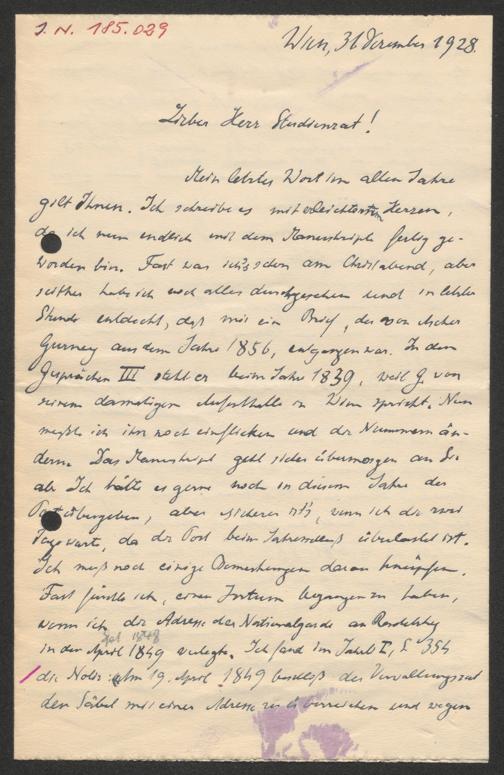 J. N. 185.029
Wien, 31 Dezember 1928.
Lieber Herr Studienrat!
Mein letztes Wort im alten Jahre
gilt Ihnen. Ich schreibe es mit erleichtertem Herzen,
da ich nun endlich mit dem Manuskripte fertig ge-
worden bin. Fast war ich's schon am Christabend, aber
seither habe ich noch alles durchgesehen und in letzter
Stunde entdeckt, daß mir ein Brief, der von Ascher
Gurney aus dem Jahre 1856, entgangen war. In den
Gesprächen III steht er beim Jahre 1839, weil G. von
seinem damaligen Aufenthalte in Wien spricht. Nun
mußte ich ihn noch einflicken und die Nummern än-
dern. Das Manuskript geht sicher übermorgen an Sie
ab. Ich hätte es gerne noch in diesem Jahre der
Post übergeben, aber sicherer ist's, wenn ich die zwei
Tage warte, da die Post beim Jahresschluß überlastet ist.
Ich muß noch einige Bemerkungen daran knüpfen.
Fast fürchte ich, einen Irrtum begangen zu haben,
wenn ich die Adresse der Nationalgarde an Radetzky
1848
in den April 1849 verlegte. Ich fand im Jahrb. I, S. 354
die Notiz: Am 19. April 1849 beschloß der Verwaltungsrat
den Säbel mit einer Adresse zu überreichen und wegen